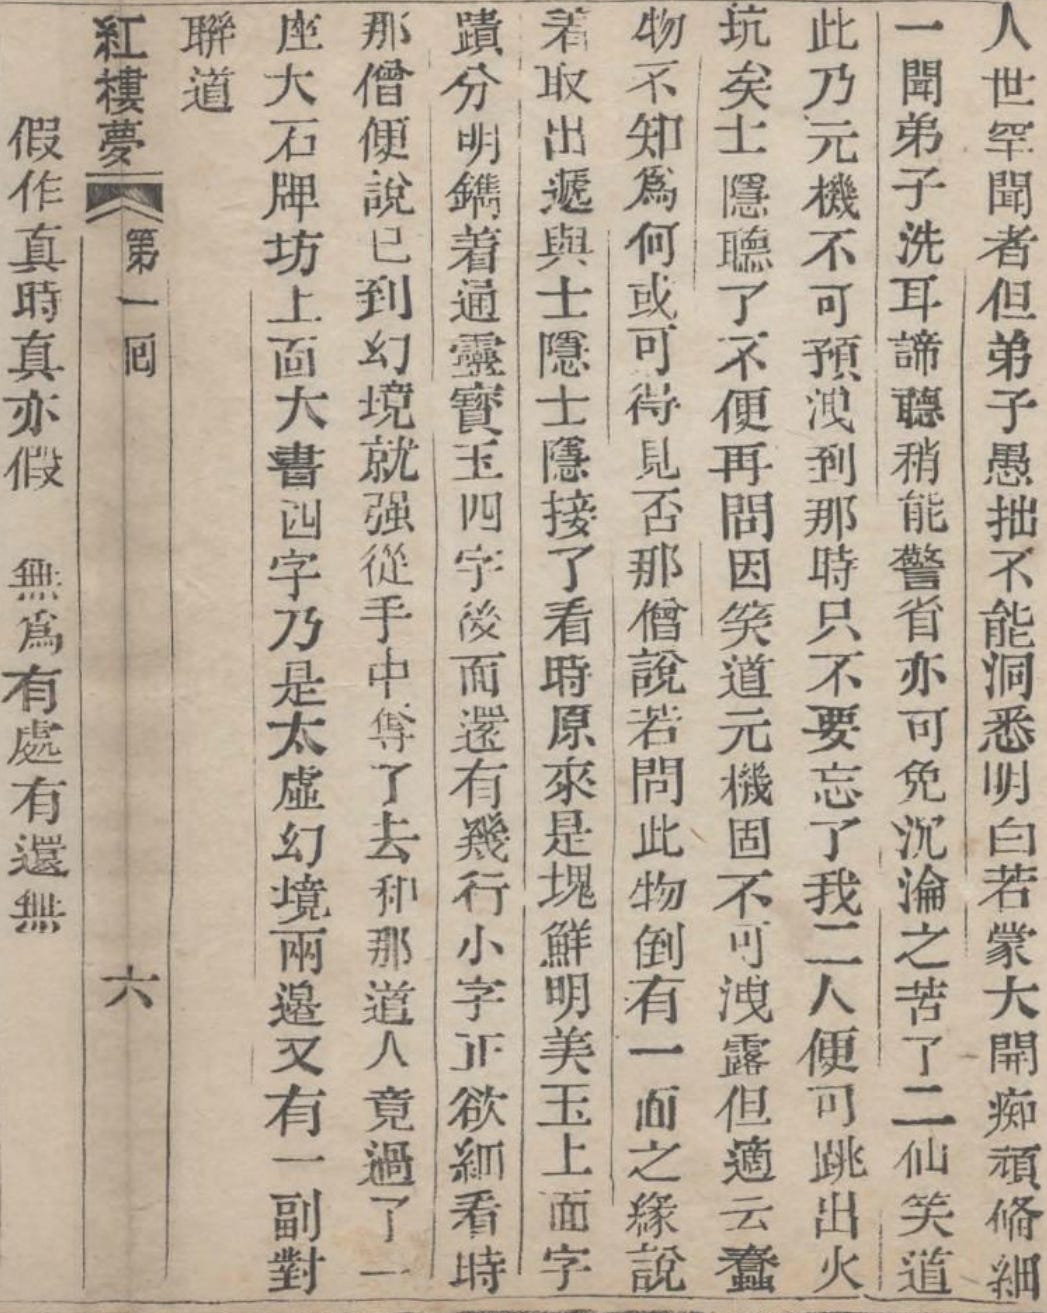 人世罕聞者但弟子愚拙不能洞悉明白若蒙大開痴頑俻細
一聞弟子洗耳諦聽稍能警省亦可免沉淪之苦了二仙笑道
此乃元機不可預洩到那時只不要忘了我二人便可跳出火
坑矣士隱聽了不便再問因笑道元機固不可洩露但適云蠢
物不知爲何或可得見否那僧說若問此物倒有一面之緣說
着取出遞與士隱士隱接了看時原來是塊鮮明美玉上面字
蹟分明鐫着通靈寳玉四字後面還有幾行小字正欲細看時
那僧便說已到幻境就强從手中奪了去和那道人竟過了一
座大石牌坊上面大書四字乃是太虛幻境兩邉又有一副對
聯道
紅樓夢 第一囘 六
假作真時真亦假 無爲有處有還無